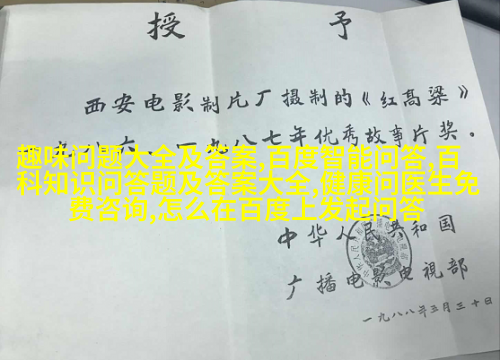 授予
西安电影制片厂摄制的《红高粱》
六、一九八七年优秀故事片奖。
趣味问题大全及答案,百度智能问答,百
科知识问答题及答案大全,健康问医生免
费咨询,怎么在百度上发起问答
中华人民共和国
广播电影电视部
一九八八年三月三十日